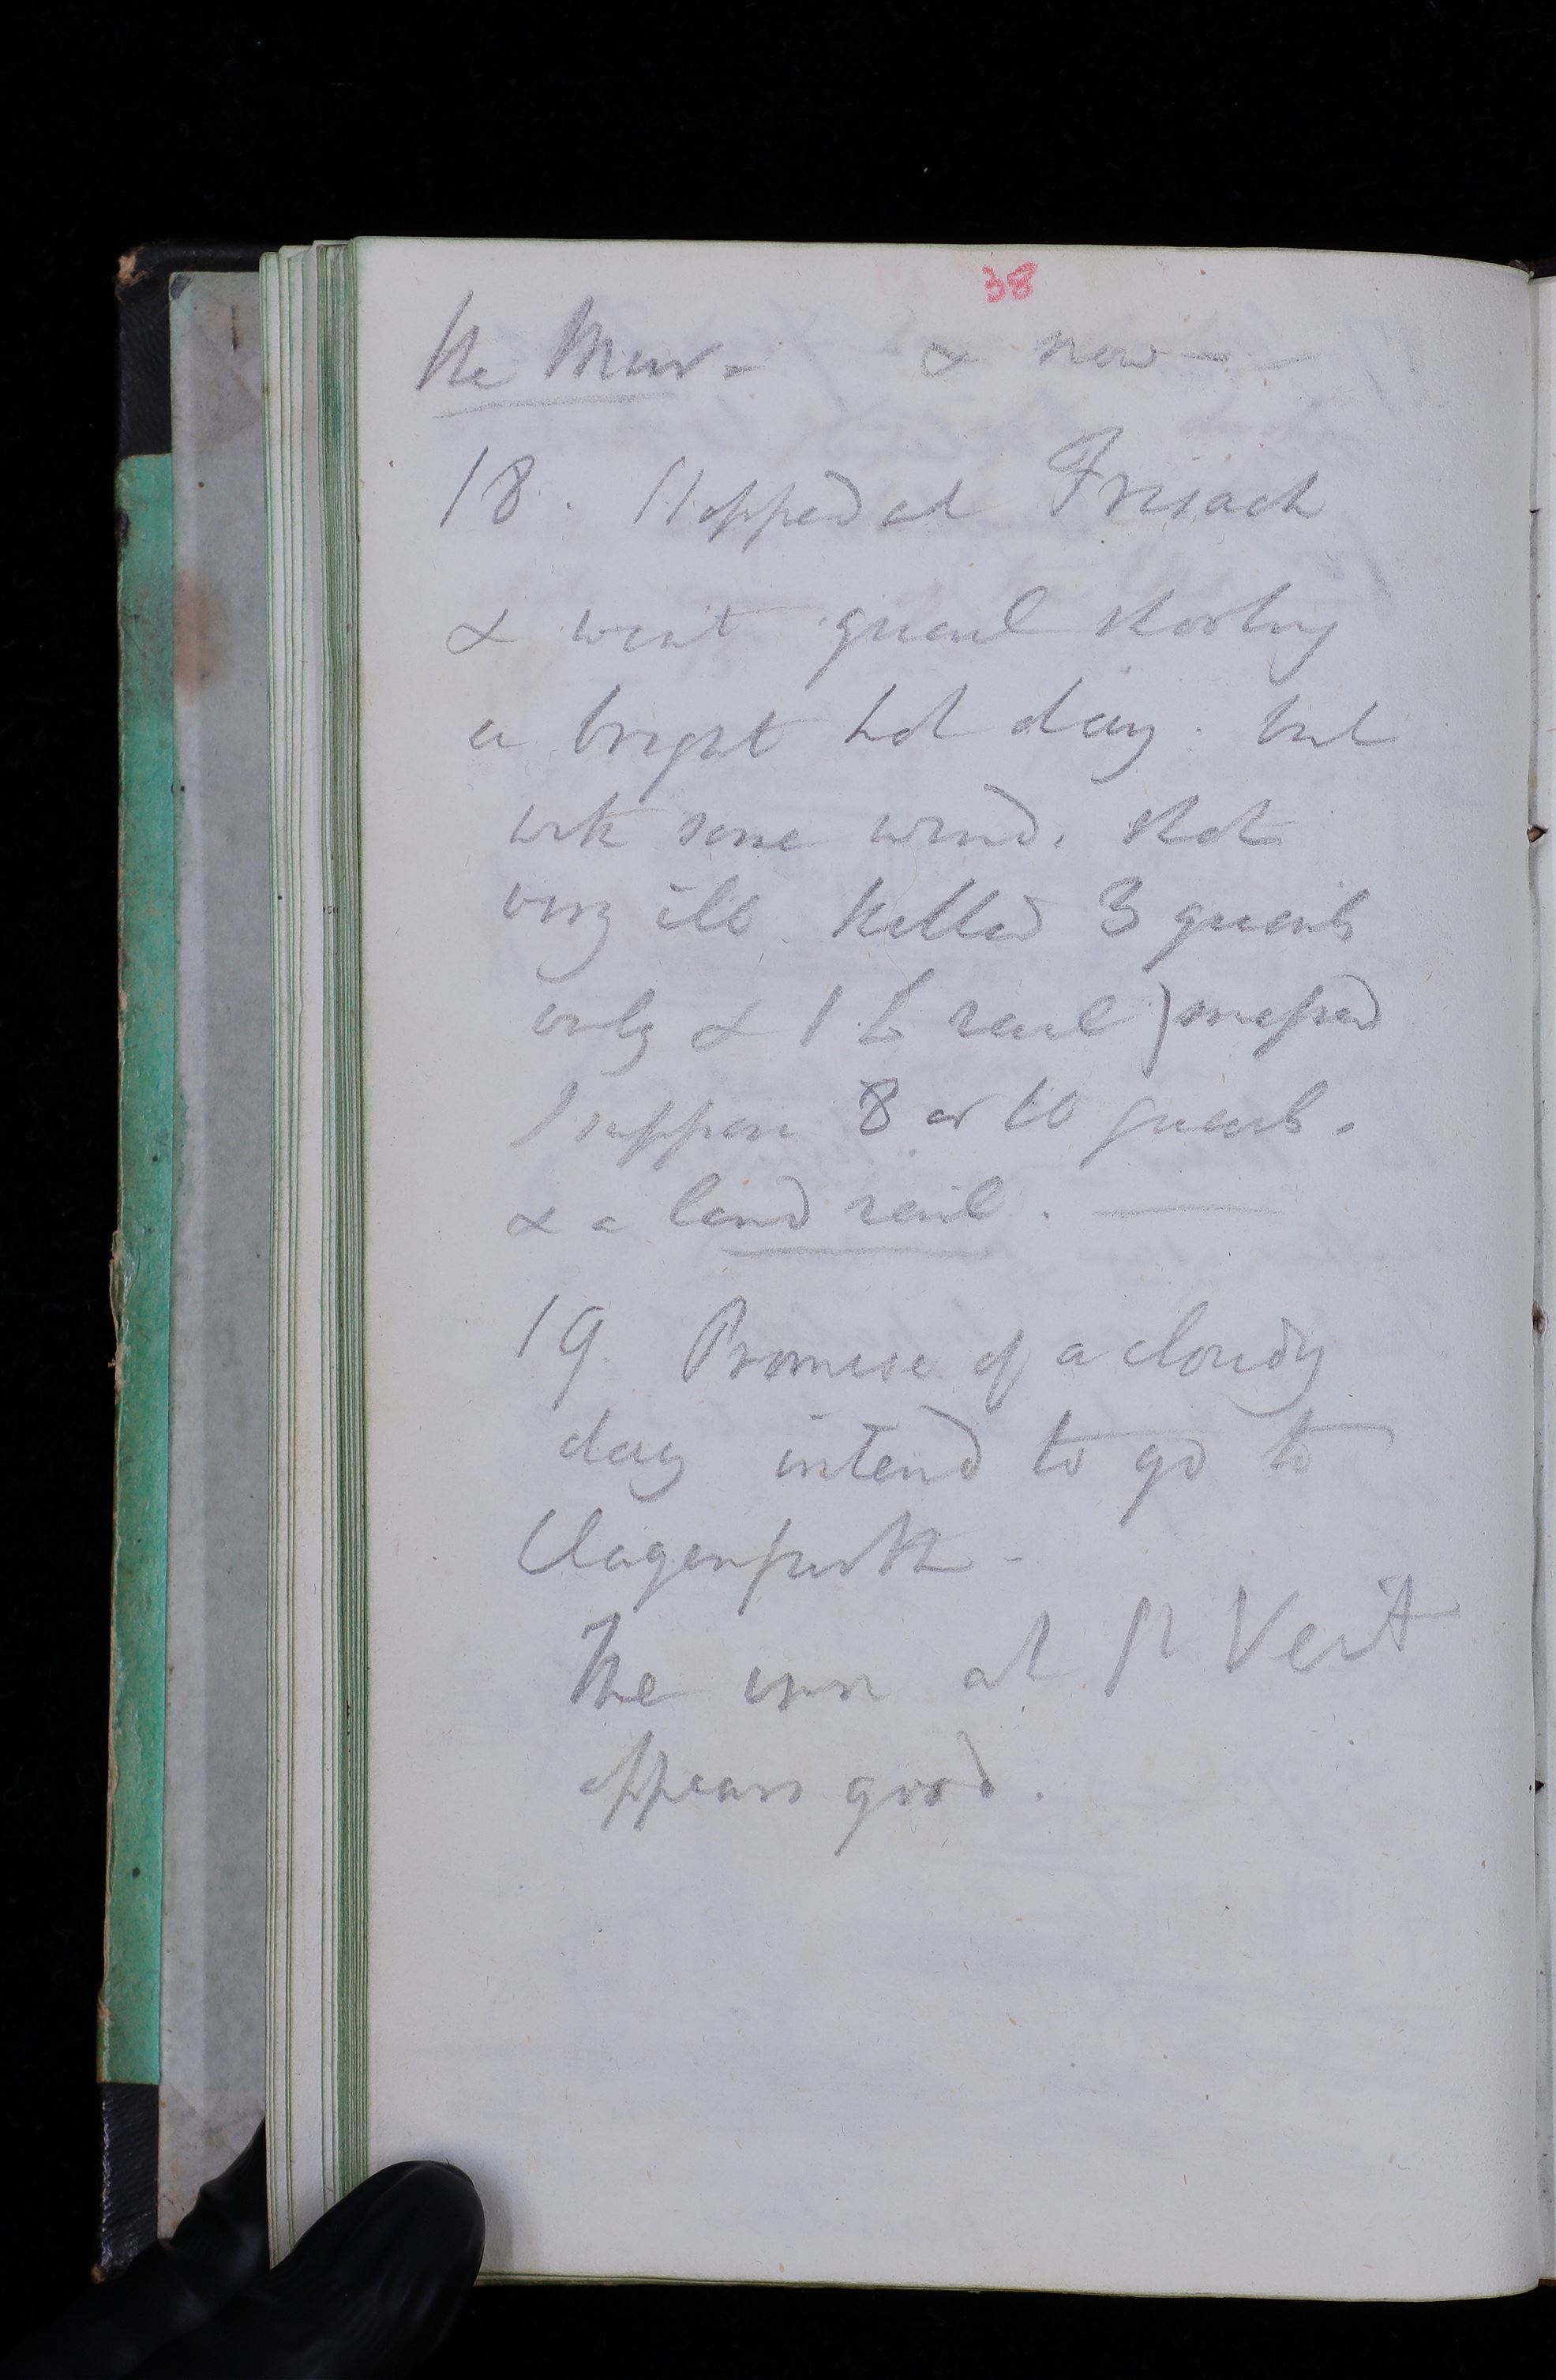 38
the Mur - & now - -
18. Stopped at Frisach
& went quail shooting
a bright hot day. but
with some wind. Shot
very ill. killed 3 quails
only & 1 L rail) missed
I suppose 8 or 10 quails.
& a land rail. —
19. Promise of a cloudy
day intend to go to
Clagenfurth -
The inn at St Veit
appears good.